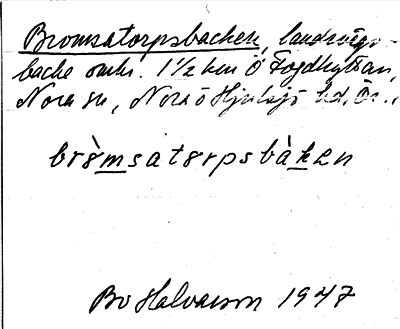 Bromsatorpsbacken, landsvägs-
backe omkr. 1 1/2 km Ö Fogdhyttan,
Nora sn, Nora o Hjulsjö hd, Ör.
br8̀msat8rpsbàkɛn
Bo Halvarson 1947